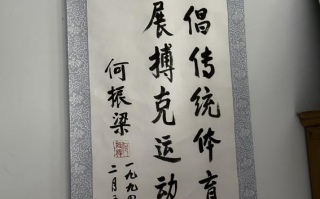 倡传统体育
展搏克运动
何振梁
一九九四
二月